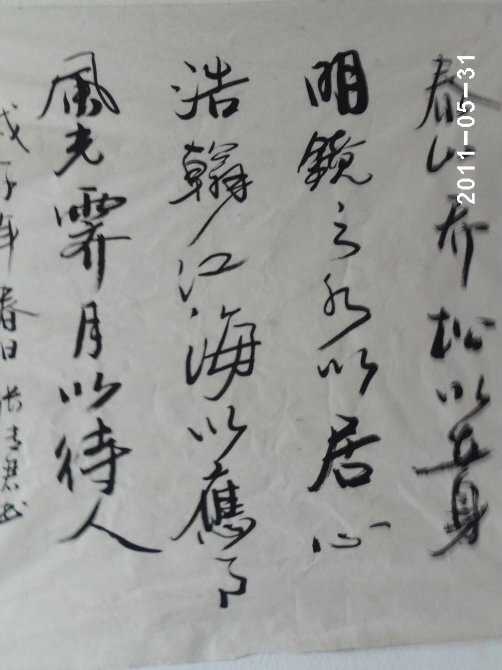 泰山乔松以立身
明鏡之水以居心
浩翰江海以應事
風光霽月以待人
戊子年春日
2011-05-31